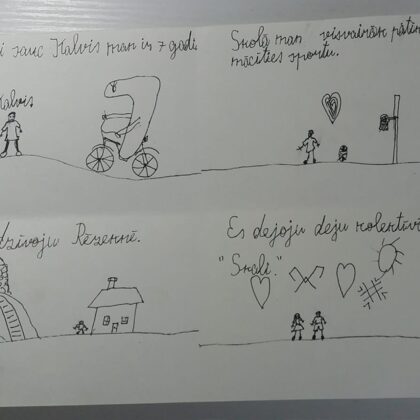 sauc Kalvis man ir 7 gadi.
Kalvis
Skolā man visvairāk
mācīties sportu.
dzīvoju Rēzeknē.
Es dejoju deju